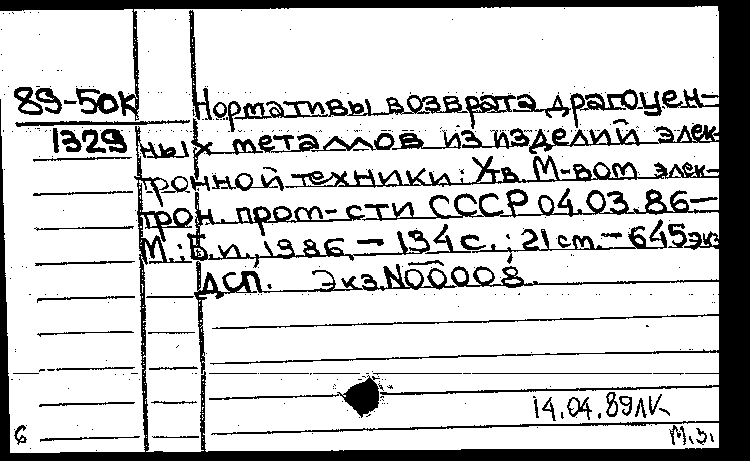 89-50к
1329
Нормативы возврата драгоцен-
ных металлов из изделий элек-
тронной техники: Утв. М-вом элек-
трон. пром-сти СССР 04.03.86-
М.: Б.и., 1986. - 134 с.; 21 см. - 645 экз
ДСП. Экз. N00008.
14.04.89ЛК
М.З.
6